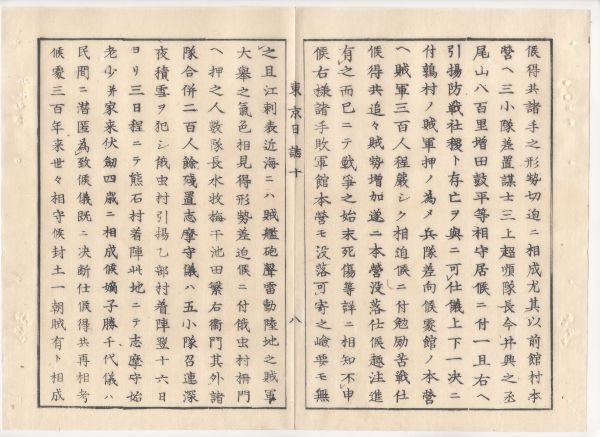 候得共諸手之形勢切迫ニ相成尤其以前館村本
營ヘ三小隊差置謀士三上超順隊長今井興之丞
尾山八百里増田皷平等相守居候ニ付一且右ヘ
引揚防戰社稷ト存亡ヲ與ニ可仕儀上下一决ニ
付鶉村ノ賊軍押ノ為メ兵隊差向候處館ノ本營
ヘ賊軍三百人程嚴シク相迫候ニ付勉勵苦戰仕
候得共追々賊勢増加遂ニ本營没落仕候趣注進
有之而已ニテ戰爭之始末死傷等詳ニ相知不申
候右様諸手敗軍館本營モ没落可寄之嶮要モ無
東京日誌十
八
之且江刺表近海ニハ賊艦砲聲雷動陸地之賊軍
大擧之氣色相見得形勢差迫候ニ付俄虫村柵門
ヘ押之人數隊長水牧梅干池田繁右衞門其外諸
隊合併二百人餘殘置志摩守儀ハ五小隊召連深
夜積雪ヲ犯シ俄虫村引揚乙部村着陣翌十六日
ヨリ三日程ニテ熊石村着陣此地ニテ志摩守始
老少并家来伏劔四歳ニ相成候嫡子勝千代儀ハ
民間ニ潜匿為致候儀既ニ决断仕候得共再相考
候處三百年来世々相守候封土一朝賊有ト相成